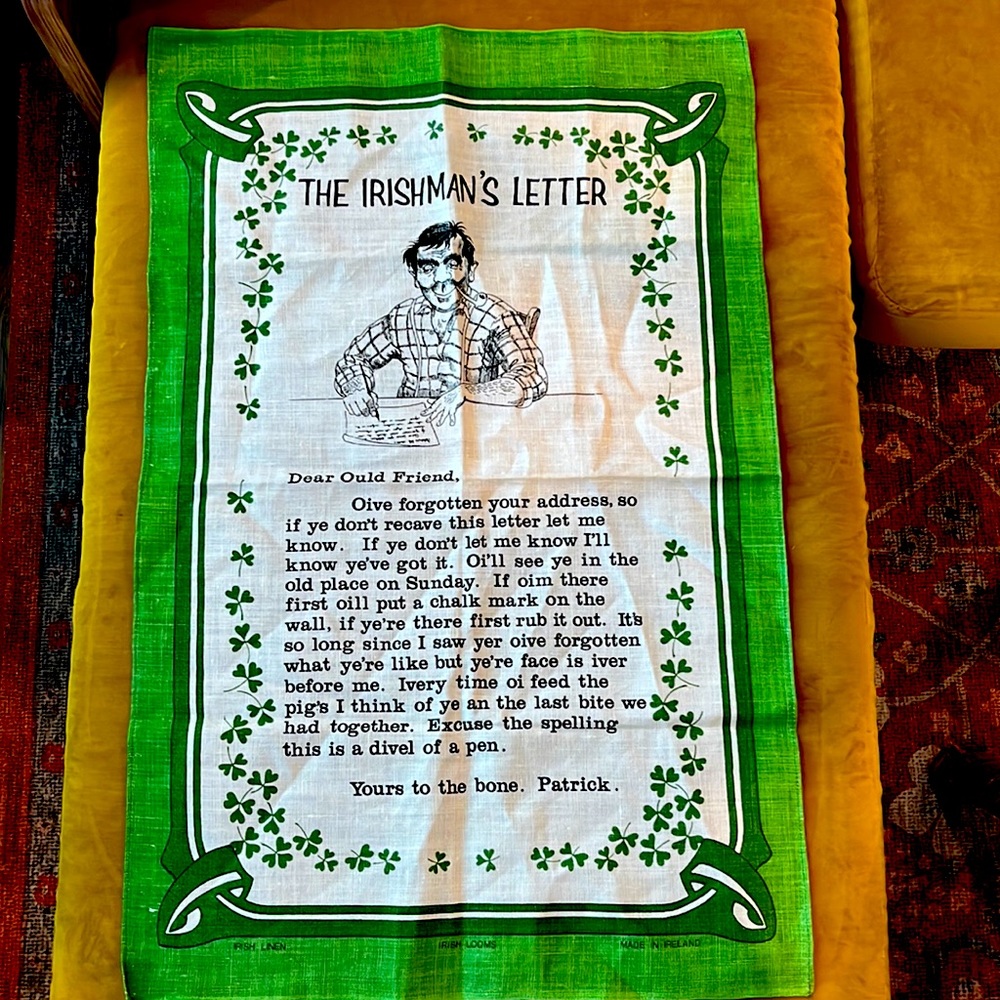 THE IRISHMAN'S LETTER
Dear Ould Friend,
Oive forgotten your address, so
if ye don't recave this letter let me
know. If ye don't let me know I'll
know ye've got it. Oi'll see ye in the
old place on Sunday. If oim there
first oill put a chalk mark on the
wall, if ye're there first rub it out. It's
so long since I saw yer oive forgotten
what ye're like but ye're face is iver
before me. Ivery time oi feed the
pig's I think of ye an the last bite we
had together. Excuse the spelling
this is a divel of a pen.
Yours to the bone. Patrick.
IRISH LINEN IRISH LOOMS MADE IN IRELAND